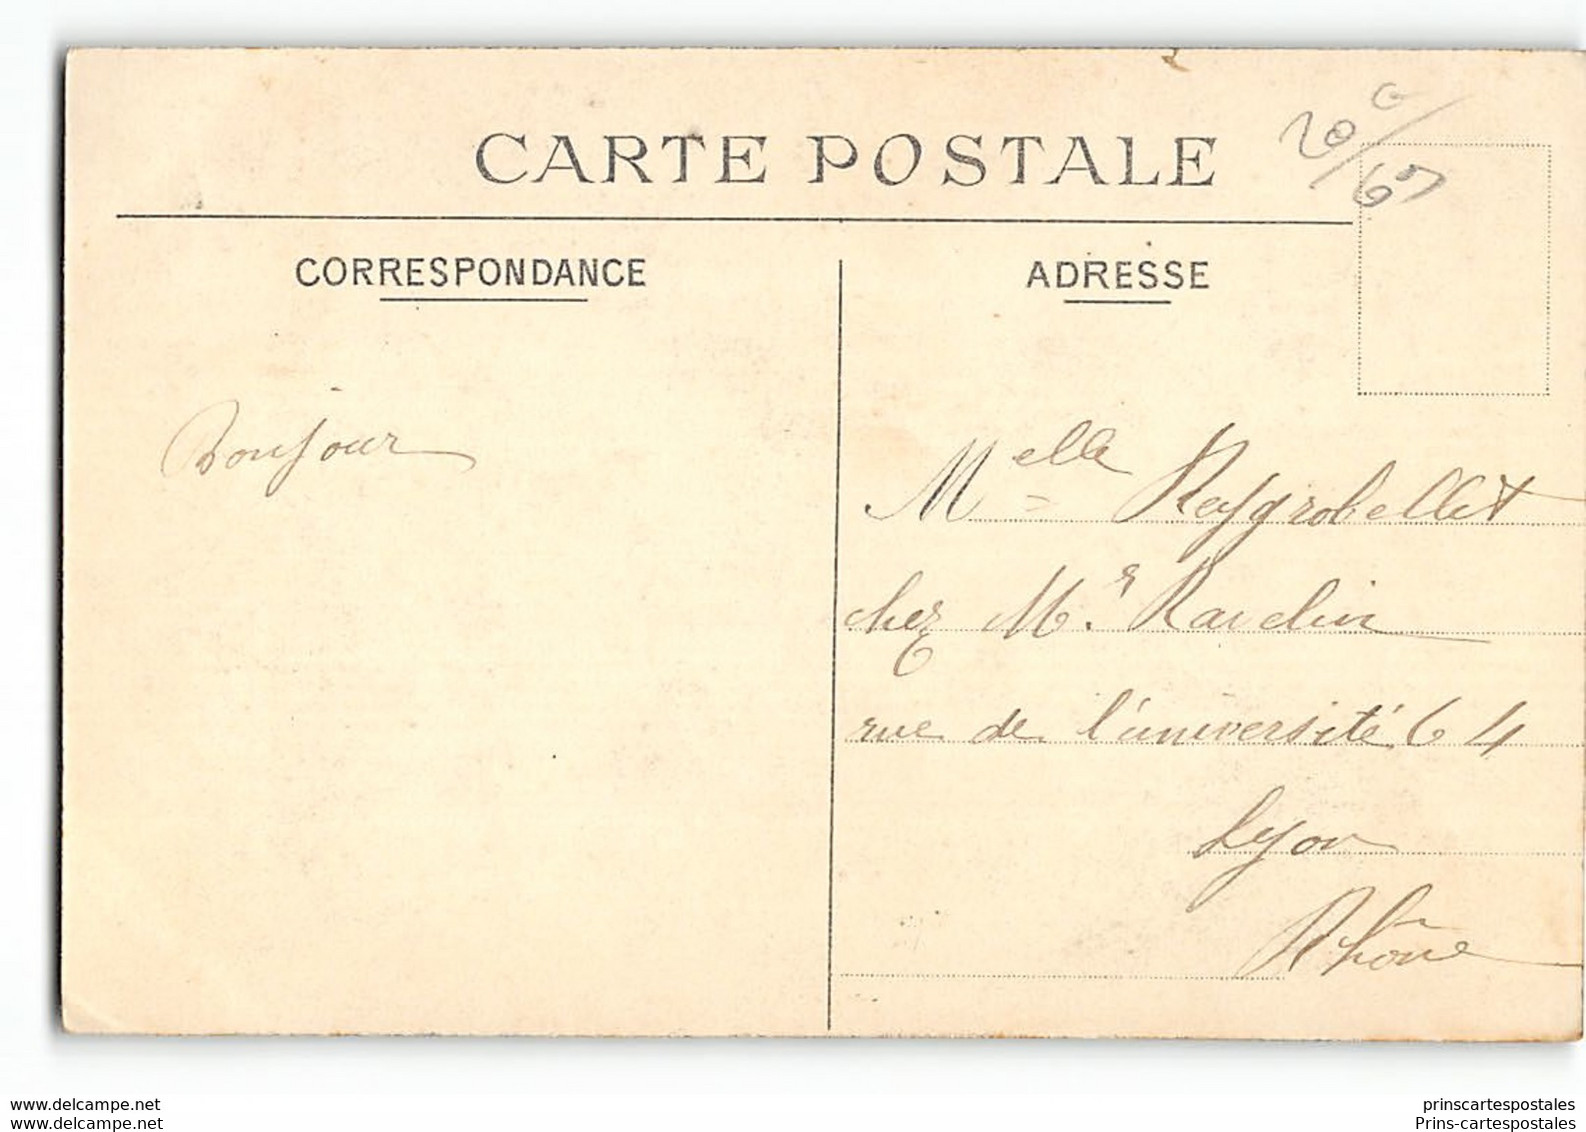 CARTE POSTALE
CORRESPONDANCE
ADRESSE
Bonjour
Melle Reygrobellet
chez Mr. Ravelin
rue de l'université 64
Lyon
Rhône
www.delcampe.net
www.delcampe.net
prinscartespostales
Prins-cartespostales